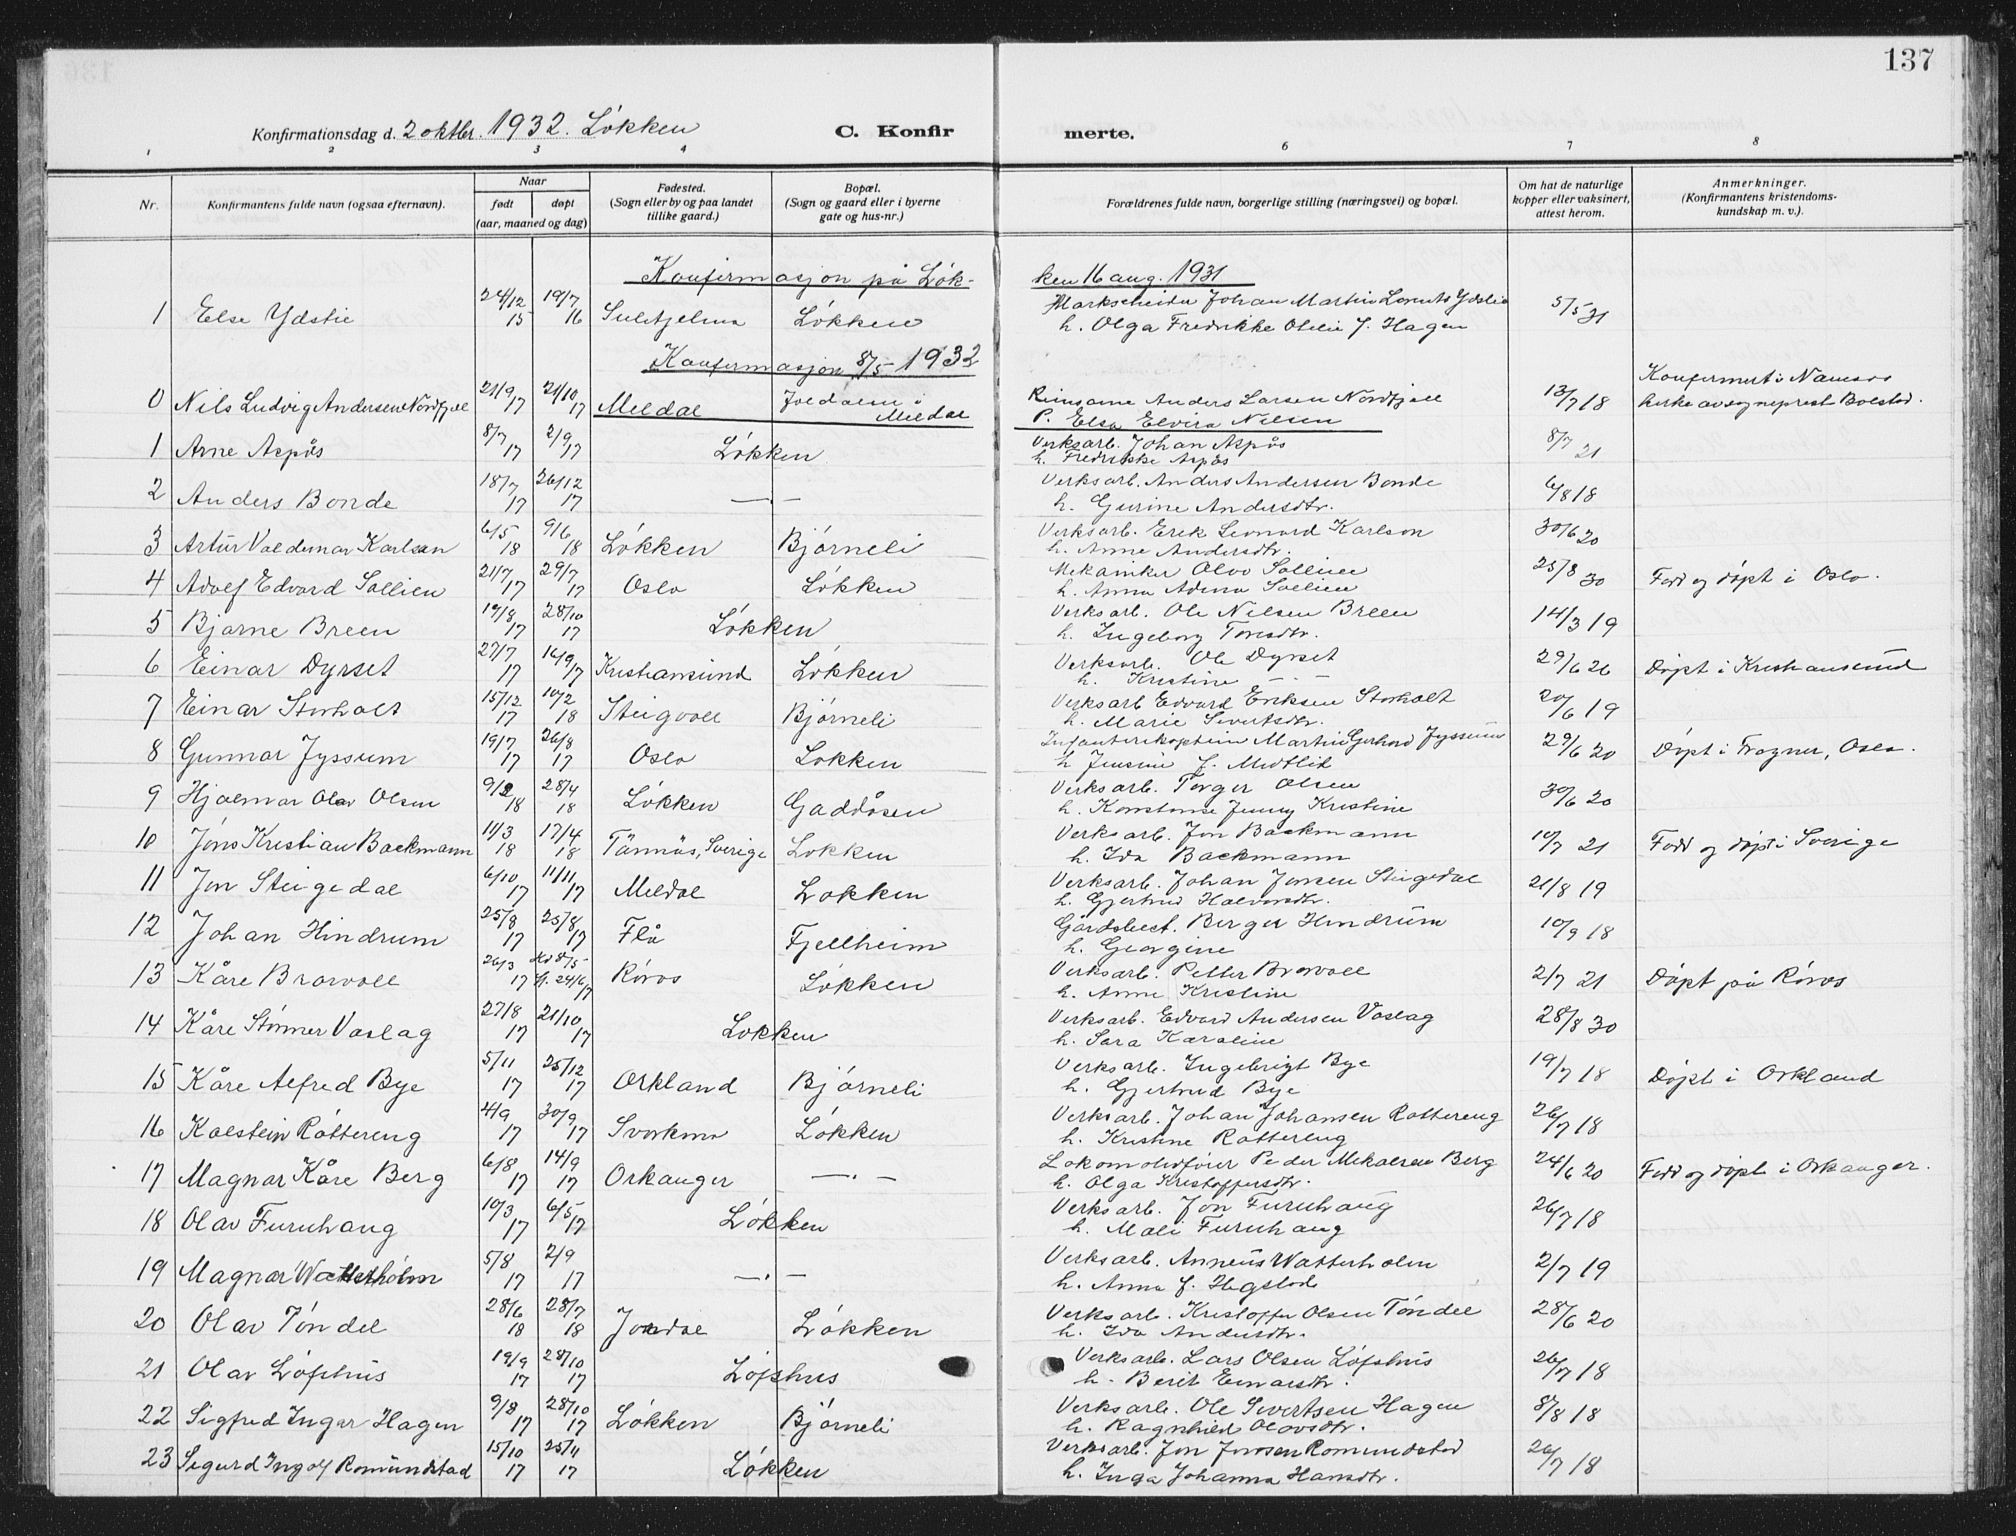 137
Konfirmationsdag d. 2 oktbr. 1932. Løkken C. Konfirmerte.
1 2 3 4 6 7 8
Nr. Konfirmantens fulde navn (ogsaa efternavn). Naar født døpt (aar, maaned og dag) Fødested. (Sogn eller by og paa landet tillike gaard.) Bopæl. (Sogn og gaard eller i byerne gate og hus-nr.) Forældrenes fulde navn, borgerlige stilling (næringsvei) og bopæl. Om hat de naturlige kopper eller vaksinert, attest herom. Anmerkninger. (Konfirmantens kristendoms-kundskap m. v.).
Konfirmasjon på Løkken 16 aug. 1931
1 Else Ydstie 24/12 15 19/7 16 Sulitjelma Løkken Markscheider Johan Martin Lorents Ydstie 5/5 31
h. Olga Fredrikke Otelie f. Hagen
Konfirmasjon 8/5 1932
0 Nils Ludvig Andersen Nordfjell 21/9 17 21/10 17 Meldal Joldalen i Meldal Anders Larsen Nordfjell 13/7 18 Konfirmert i Namsos
P. Elsa Elvira Nilsen kirke av sogneprest Bolstad.
1 Arne Aspås 8/7 17 2/9 17 Løkken Verksarb. Johan Aspås 8/7 21
h. Fredrikke Aspås
2 Anders Bonde 18/7 17 26/12 17 —"— Verksarb. Anders Andersen Bonde 6/8 18
h. Gurine Andersdtr.
3 Artur Valdemar Karlsen 6/5 18 9/6 18 Løkken Bjørneli Verksarb. Erik Leonard Karlson 30/6 20
h. Anne Andersdtr.
4 Adolf Edvard Sollien 21/7 17 29/7 17 Oslo Løkken Mekaniker Olvo Sollien 25/8 30 Født og døpt i Oslo.
h. Anna Adina Sollien
5 Bjarne Breen 19/8 17 28/10 17 Løkken Verksarb. Ole Nilsen Breen 14/3 19
h. Ingeborg Toresdtr.
6 Einar Dyrset 27/7 17 16/9 17 Kristiansund Løkken Verksarb. Ole Dyrset 29/6 26 Døpt i Kristiansund
h. Kristine —"—
7 Einar Storholt 15/12 17 10/2 18 Steigvoll Bjørneli Verksarb Edvard Eriksen Storholt 20/6 19
h. Marie Sivertsdtr.
8 Gunnar Jyssum 19/7 17 26/8 17 Oslo Løkken Infanterikaptein Martin Gerhard Jyssum 29/6 20 Døpt i Frogner, Oslo.
h Jensine f. Midtlid
9 Hjalmar Olav Olsen 9/2 18 28/4 18 Løkken Gaddåsen Verksarb. Torger Olsen 30/6 20
h. Konstanse Jenny Kristine
10 Jøns Kristian Backmann 11/3 18 17/4 18 Tännäs, Sverige Løkken Verksarb. Jon Backmann 10/7 21 Født og døpt i Sverige
h. Ida Backmann
11 Jon Steigedal 6/10 17 11/11 17 Meldal Løkken Verksarb. Johan Jonsen Steigedal 21/8 19
h. Gjertrud Halvorsdtr.
12 Johan Hindrum 25/3 17 25/8 17 Flå Fjellheim Gårdsbest. Berger Hindrum 10/9 18
h. Georgine
13 Kåre Bravoll 26/3 17 Hd 8/5 k. 24/6 17 Røros Løkken Verksarb. Petter Bravoll 2/7 21 Døpt på Røros
h. Anne Kristine
14 Kåre Størmer Vaslag 27/8 17 21/10 17 Løkken Verksarb. Edvard Andersen Vaslag 28/8 30
h. Sara Karoline
15 Kåre Alfred Bye 5/11 17 25/12 17 Orkland Bjørneli Verksarb. Ingebrigt Bye 19/7 18 Døpt i Orkland
h. Gjertrud Bye
16 Kolstein Råttereng 4/9 17 30/9 17 Svorkmo Løkken Verksarb. Johan Johansen Råttereng 26/7 18
h. Kristine Råttereng
17 Magnar Kåre Berg 6/8 17 14/9 17 Orkanger —"— Lokomotivfører Peder Mikalsen Berg 24/6 20 Født og døpt i Orkanger.
h. Olga Kristoffersdtr.
18 Olav Furuhaug 10/3 17 6/5 17 Løkken Verksarb. Jon Furuhaug 26/7 18
h. Mali Furuhaug
19 Magnar Watterholm 5/8 17 2/9 17 —"— Verksarb. Anneus Watterholm 2/7 19
h. Anna f. Hegstad
20 Olav Tøndel 28/6 18 28/7 18 Joldal Løkken Verksarb. Kristoffer Olsen Tøndel 28/6 20
h. Ida Andersdtr.
21 Olav Løfshus 19/9 17 28/10 17 Løfshus Verksarb. Lars Olsen Løfshus 26/7 18
h. Berit Einarsdtr.
22 Sigfred Ingar Hagen 9/8 17 28/10 17 Løkken Bjørneli Verksarb. Ole Sivertsen Hagen 8/8 18
h. Ragnhild Olavsdtr.
23 Sigurd Ingolf Romundstad 15/10 17 25/11 17 Løkken Verksarb. Jon Jonsen Romundstad 26/7 18
h. Inga Johanna Hansdtr.